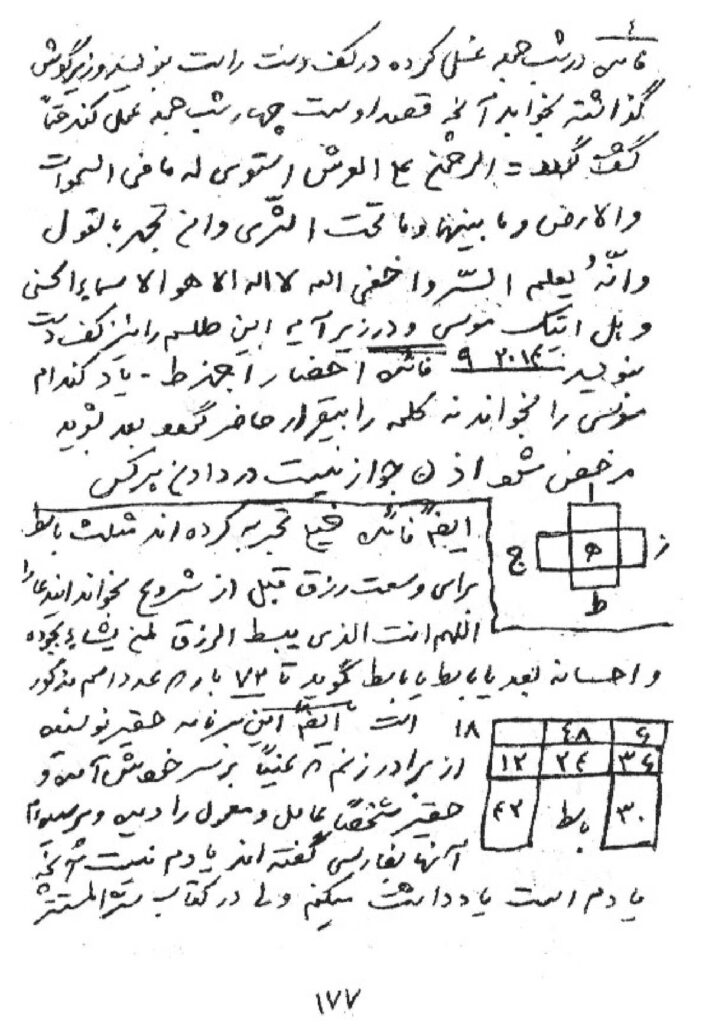 ٤
فائده در شب جمعه غسل کرده در کف دست راست بنویسد و زیر گوش
گذاشته بخوابد آنچه قصد اوست چهار شب جمعه عمل کند حتماً
الرحمن ع العرش استوی له ما فی السموات
والارض و ما بینهما وما تحت الثّری وان تجهر بالقول
وانّه یعلم السّر واخفی الله لا اله الا هو الاسماء الحسنی
و هل اتیک موسی و در زیر آیه این طلسم را نیز کف دست
بنویسد ۲۰۱۴ ۹ فائده احضار اجهزط - یاد کندام
مونسی را بخواند نه کلمه را بیقرار حاضر گردد بعد بگوید
مرخص شو اذن جواز نیست در دادن بر کس
ا
ز ه ج
ط
ایضاً فائده خیلی تجربه کرده اند مثلث باسط
برای وسعت رزق قبل از شروع بخواند این دعا را
اللهم انت الذی یبسط الرزق لمن یشاء بجوده
و احسانه بعد یا باسط یا باسط گوید تا ۷۲ بار ۸ عدد اسم مذکور
است ایضاً این سرنامه حقیر نویسنده
۱۸ ٤۸ ۶
۱۲ ۲٤ ۳۶
٤۲ باسط ۳۰
از برادر زنم ۸ عیناً بر سر خودش آمده و
حقیر شخصاً عامل و معمول را دیده و پرسیدم
آنها بفارسی گفته اند یادم نیست آنچه
یادم است یادداشت میکنم ولی در کتاب سرّ المستتر
۱۷۷